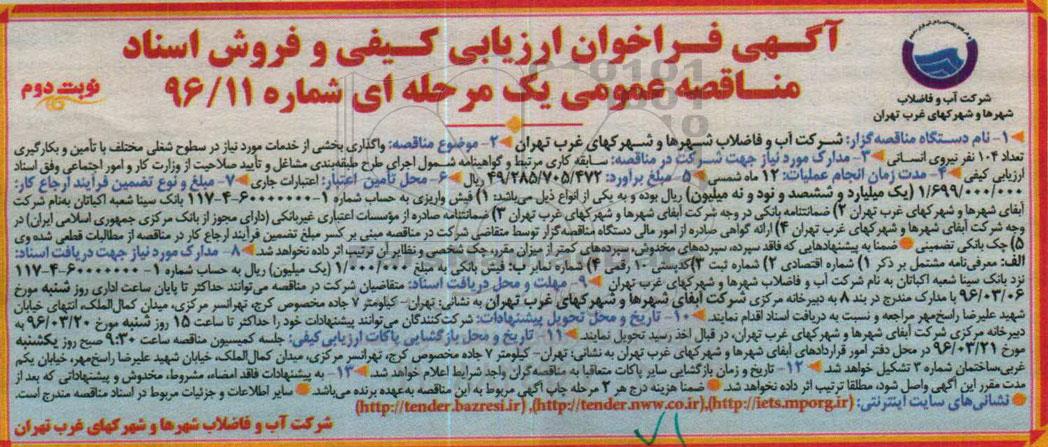 آگهی فراخوان ارزیابی کیفی و فروش اسناد
مناقصه عمومی یک مرحله ای شماره ۹۶/۱۱
نوبت دوم
شرکت آب و فاضلاب
شهرها و شهرکهای غرب تهران
۱- نام دستگاه مناقصه‌گزار: شرکت آب و فاضلاب شهرها و شهرکهای غرب تهران ۲- موضوع مناقصه: واگذاری بخشی از خدمات مورد نیاز در سطوح شغلی مختلف با تأمین و بکارگیری
تعداد ۱۰۴ نفر نیروی انسانی ۳- مدارک مورد نیاز جهت شرکت در مناقصه: سابقه کاری مرتبط و گواهینامه شمول اجرای طرح طبقه‌بندی مشاغل و تأیید صلاحیت از وزارت کار و امور اجتماعی وفق اسناد
ارزیابی کیفی ۴- مدت زمان انجام عملیات: ۱۲ ماه شمسی ۵- مبلغ برآورد: ۴۹/۲۸۵/۷۰۵/۴۷۲ ریال ۶- محل تأمین اعتبار: اعتبارات جاری ۷- مبلغ و نوع تضمین فرآیند ارجاع کار:
۱/۶۹۹/۰۰۰/۰۰۰ (یک میلیارد و ششصد و نود و نه میلیون) ریال بوده و به یکی از انواع ذیل می‌باشد: ۱) فیش واریزی به حساب شماره ۱-۶۰۰۰۰۰۰۰-۴-۱۱۷ بانک سینا شعبه اکباتان به‌نام شرکت
آبفای شهرها و شهرکهای غرب تهران ۲) ضمانتنامه بانکی در وجه شرکت آبفای شهرها و شهرکهای غرب تهران ۳) ضمانتنامه صادره از مؤسسات اعتباری غیربانکی (دارای مجوز از بانک مرکزی جمهوری اسلامی ایران) در
وجه شرکت آبفای شهرها و شهرکهای غرب تهران ۴) ارائه گواهی صادره از امور مالی دستگاه مناقصه‌گزار توسط متقاضی شرکت در مناقصه مبنی بر کسر مبلغ تضمین فرآیند ارجاع کار در مناقصه از مطالبات قطعی شده وی
۵) چک بانکی تضمینی ضمنا به پیشنهادهایی که فاقد سپرده، سپرده‌های مخدوش، سپرده‌های کمتر از میزان مقرر، چک شخصی و نظایر آن ترتیب اثر داده نخواهد شد. ۸- مدارک مورد نیاز جهت دریافت اسناد:
الف: معرفی‌نامه مشتمل بر ذکر ۱) شماره اقتصادی ۲) شماره ثبت ۳) کدپستی ۱۰ رقمی ۴) شماره نمابر ب: فیش بانکی به مبلغ ۱/۰۰۰/۰۰۰ (یک میلیون) ریال به حساب شماره ۱-۶۰۰۰۰۰۰۰-۴-۱۱۷
نزد بانک سینا شعبه اکباتان به نام شرکت آب و فاضلاب شهرها و شهرکهای غرب تهران ۹- مهلت و محل دریافت اسناد: متقاضیان شرکت در مناقصه می‌توانند حداکثر تا پایان ساعت اداری روز شنبه مورخ
۹۶/۰۳/۰۶ با مدارک مندرج در بند ۸ به دبیرخانه مرکزی شرکت آبفای شهرها و شهرکهای غرب تهران به نشانی: تهران- کیلومتر ۷ جاده مخصوص کرج، تهرانسر مرکزی، میدان کمال‌الملک، انتهای خیابان
شهید علیرضا راسخ‌مهر مراجعه و نسبت به دریافت اسناد اقدام نمایند. ۱۰- تاریخ و محل تحویل پیشنهادات: شرکت‌کنندگان می‌توانند پیشنهادات خود را حداکثر تا ساعت ۱۵ روز شنبه مورخ ۹۶/۰۳/۲۰ به
دبیرخانه مرکزی شرکت آبفای شهرها و شهرکهای غرب تهران، در قبال اخذ رسید تحویل نمایند. ۱۱- تاریخ و محل بازگشایی پاکات ارزیابی کیفی: جلسه کمیسیون مناقصه ساعت ۹:۳۰ صبح روز یکشنبه
مورخ ۹۶/۰۳/۲۱ در محل دفتر امور قراردادهای آبفای شهرها و شهرکهای غرب تهران به نشانی: تهران- کیلومتر ۷ جاده مخصوص کرج، تهرانسر مرکزی، میدان کمال‌الملک، خیابان شهید علیرضا راسخ‌مهر، خیابان یکم
غربی، ساختمان شماره ۳ تشکیل خواهد شد. ۱۲- تاریخ و زمان بازگشایی سایر پاکات متعاقبا به مناقصه‌گران واجد شرایط اعلام خواهد شد. ۱۳- به پیشنهادات فاقد امضاء، مشروط، مخدوش و پیشنهاداتی که بعد از
مدت مقرر این آگهی واصل شود، مطلقا ترتیب اثر داده نخواهد شد. ضمنا هزینه درج هر ۲ مرحله چاپ آگهی مربوط به این مناقصه به‌عهده برنده می‌باشد. سایر اطلاعات و جزئیات مربوط در اسناد مناقصه مندرج است.
نشانی‌های سایت اینترنتی: (http://iets.mporg.ir)، (http://tender.nww.co.ir)، (http://tender.bazresi.ir)
شرکت آب و فاضلاب شهرها و شهرکهای غرب تهران
۷۱